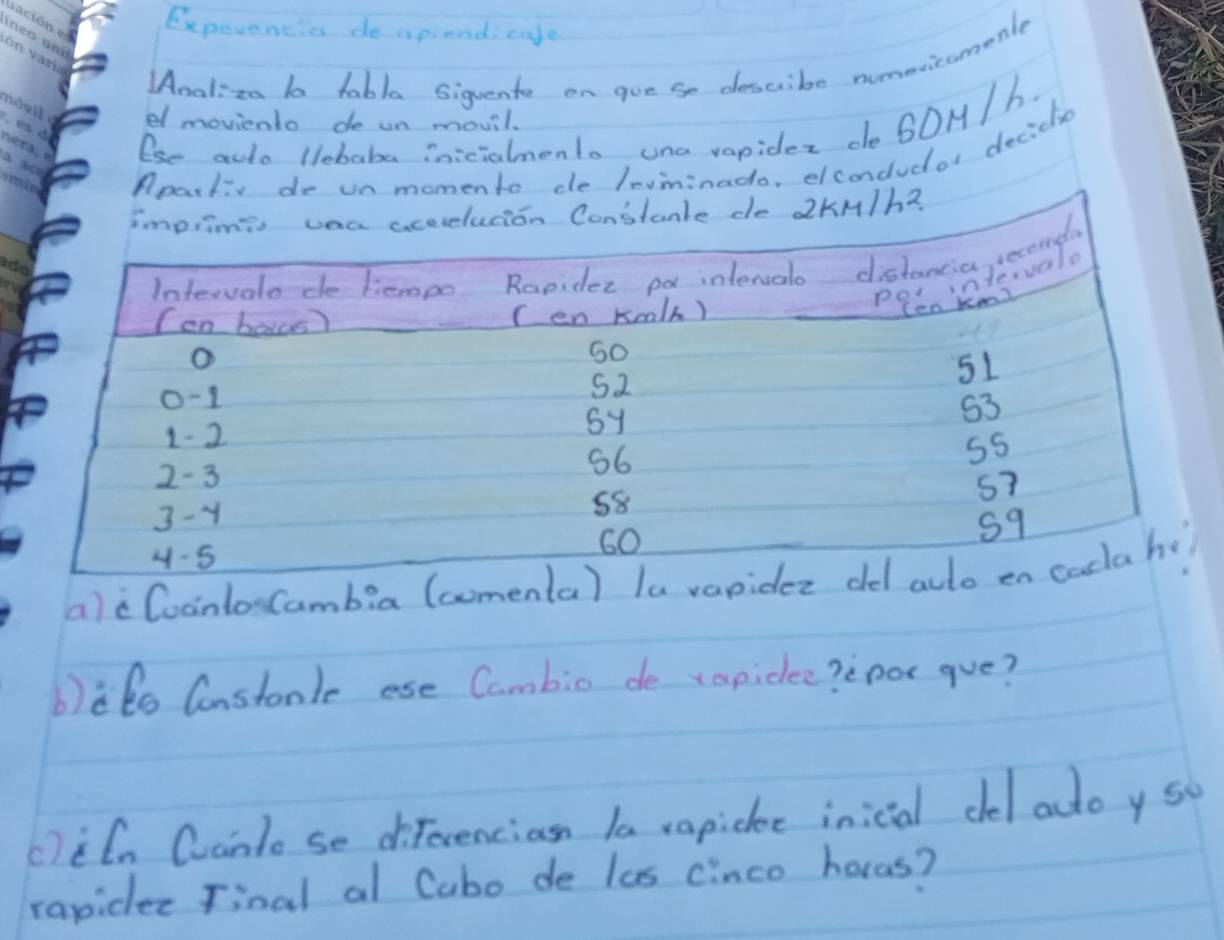 uación e
líneo uni
ión varia
móvil
e, es d
nera, e
a ace
smin
ado
Expevencia de aprendicaje
Analiza la tabla siguente en que se describe numericamente
el moviento de un movil.
Ese auto llebaba inicialmento una rapidez de 50M/h.
Apartir de un momento de terminado, el conductor decicho
imprimir una acerelación Constante de 2KM/h².
Intervalo de tiempo Rapidez por intervalo distancia recorrida
(en horas) (en Km/h) por intervalo
(en Km)
0 50
0-1 52 51
1-2 54 53
2-3 56 55
3-4 58 57
4-5 60 59
a) ¿Cuánto Cambia (aumenta) la rapidez del auto en cada hr?
b) ¿Es Constante ese Cambio de rapidez? ¿por que?
c) ¿En Cuánto se diferencian la rapidez inicial del auto y su
rapidez Final al Cabo de las cinco horas?